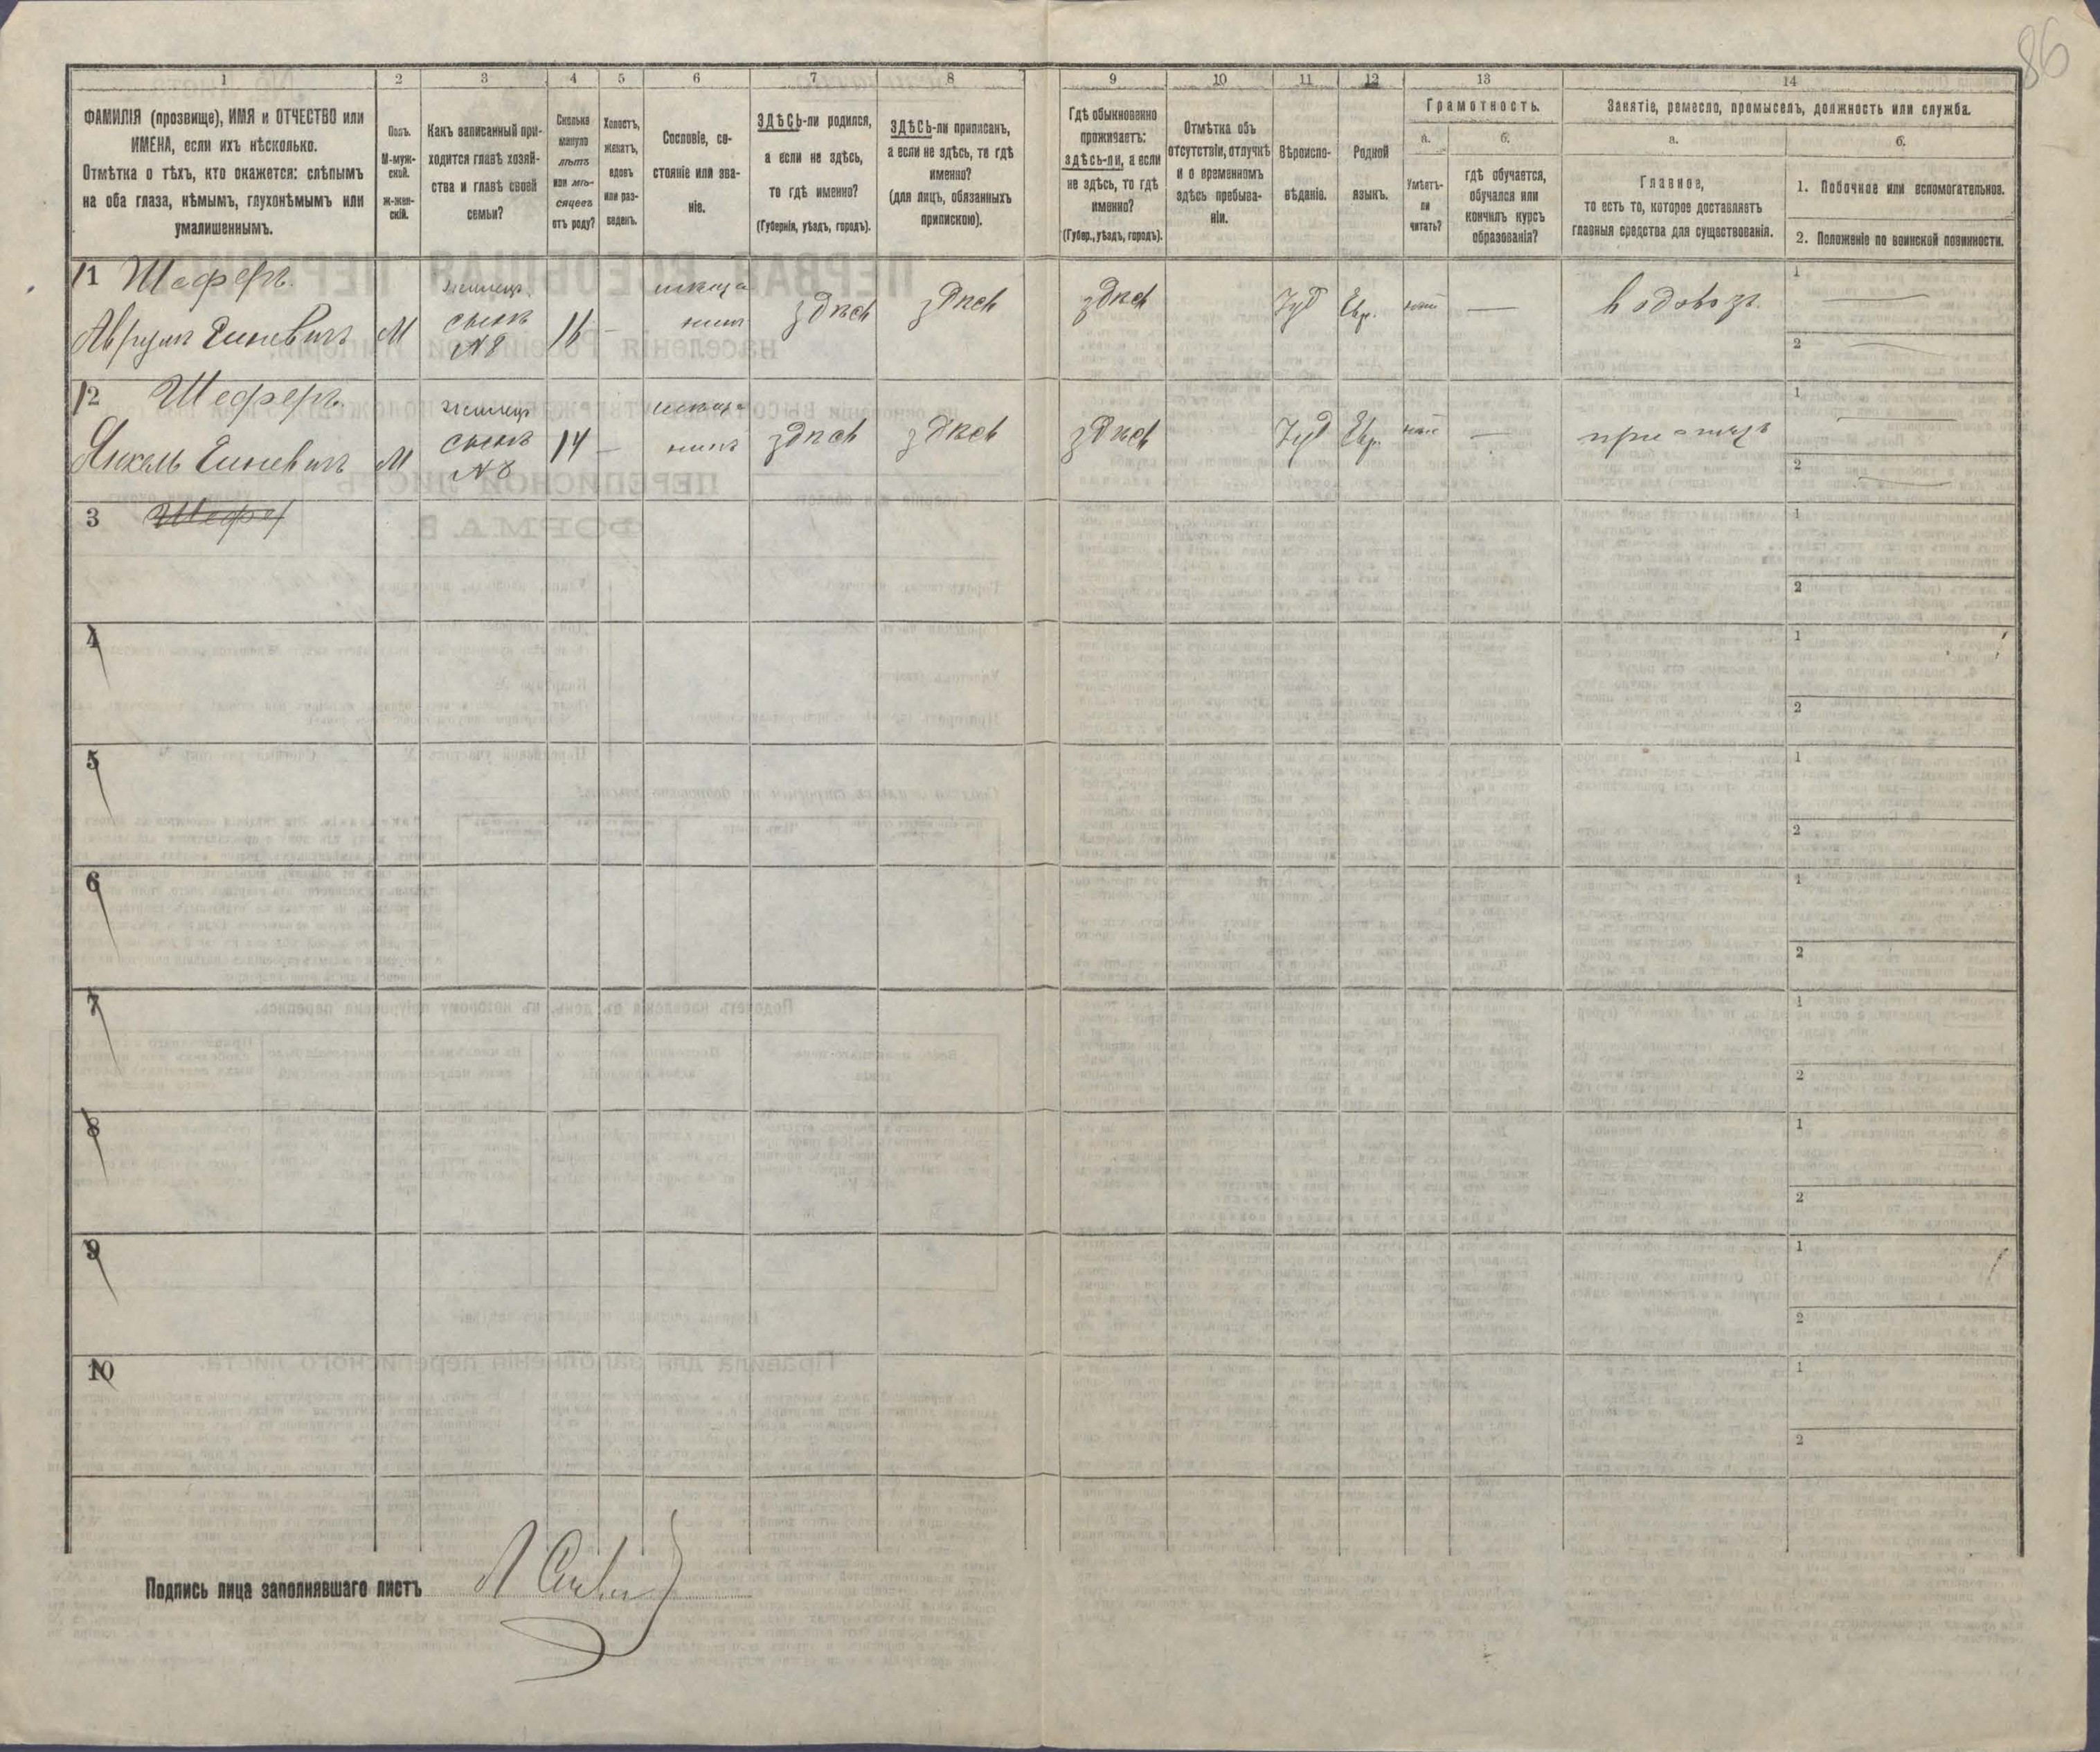 86
1
2
3
4
5
6
7
8
9
10
11
12
13
14
ФАМИЛІЯ (прозвище), ИМЯ и ОТЧЕСТВО или
ИМЕНА, если ихъ нѣсколько.
Отмѣтка о тѣхъ, кто окажется: слѣпымъ
на оба глаза, нѣмымъ, глухонѣмымъ или
умалишеннымъ.
Полъ.
М-муж-
ской.
ж-жен-
скій.
Какъ записанный при-
ходится главѣ хозяй-
ства и главѣ своей
семьи?
Сколько
минуло
лѣтъ
или мѣ-
сяцевъ
отъ роду?
Холостъ,
женатъ,
вдовъ
или раз-
веденъ.
Сословіе, со-
стояніе или зва-
ніе.
ЗДѢСЬ-ли родился,
а если не здѣсь,
то гдѣ именно?
(Губернія, уѣздъ, городъ).
ЗДѢСЬ-ли приписанъ,
а если не здѣсь, то гдѣ
именно?
(для лицъ, обязанныхъ
припискою).
Гдѣ обыкновенно
проживаетъ:
здѣсь-ли, а если
не здѣсь, то гдѣ
именно?
(Губер., уѣздъ, городъ).
Отмѣтка объ
отсутствіи, отлучкѣ
и о временномъ
здѣсь пребыва-
ніи.
Вѣроиспо-
вѣданіе.
Родной
языкъ.
Грамотность.
а.
Умѣетъ-
ли
читать?
б.
гдѣ обучается,
обучался или
кончилъ курсъ
образованія?
Занятіе, ремесло, промыселъ, должность или служба.
а.
Главное,
то есть то, которое доставляетъ
главныя средства для существованія.
б.
1. Побочное или вспомогательное.
2. Положеніе по воинской повинности.
11 Шеферъ.
М
сынъ
№8
16
—
здѣсь
здѣсь
здѣсь
Іуд
Евр.
—
водовозъ
1
2
12 Шеферъ
М
сынъ
№8
14
—
здѣсь
здѣсь
здѣсь
Іуд
Евр.
—
1
2
3
1
2
4
1
2
5
1
2
6
1
2
7
1
2
8
1
2
9
1
2
10
1
2
Подпись лица заполнявшаго листъ